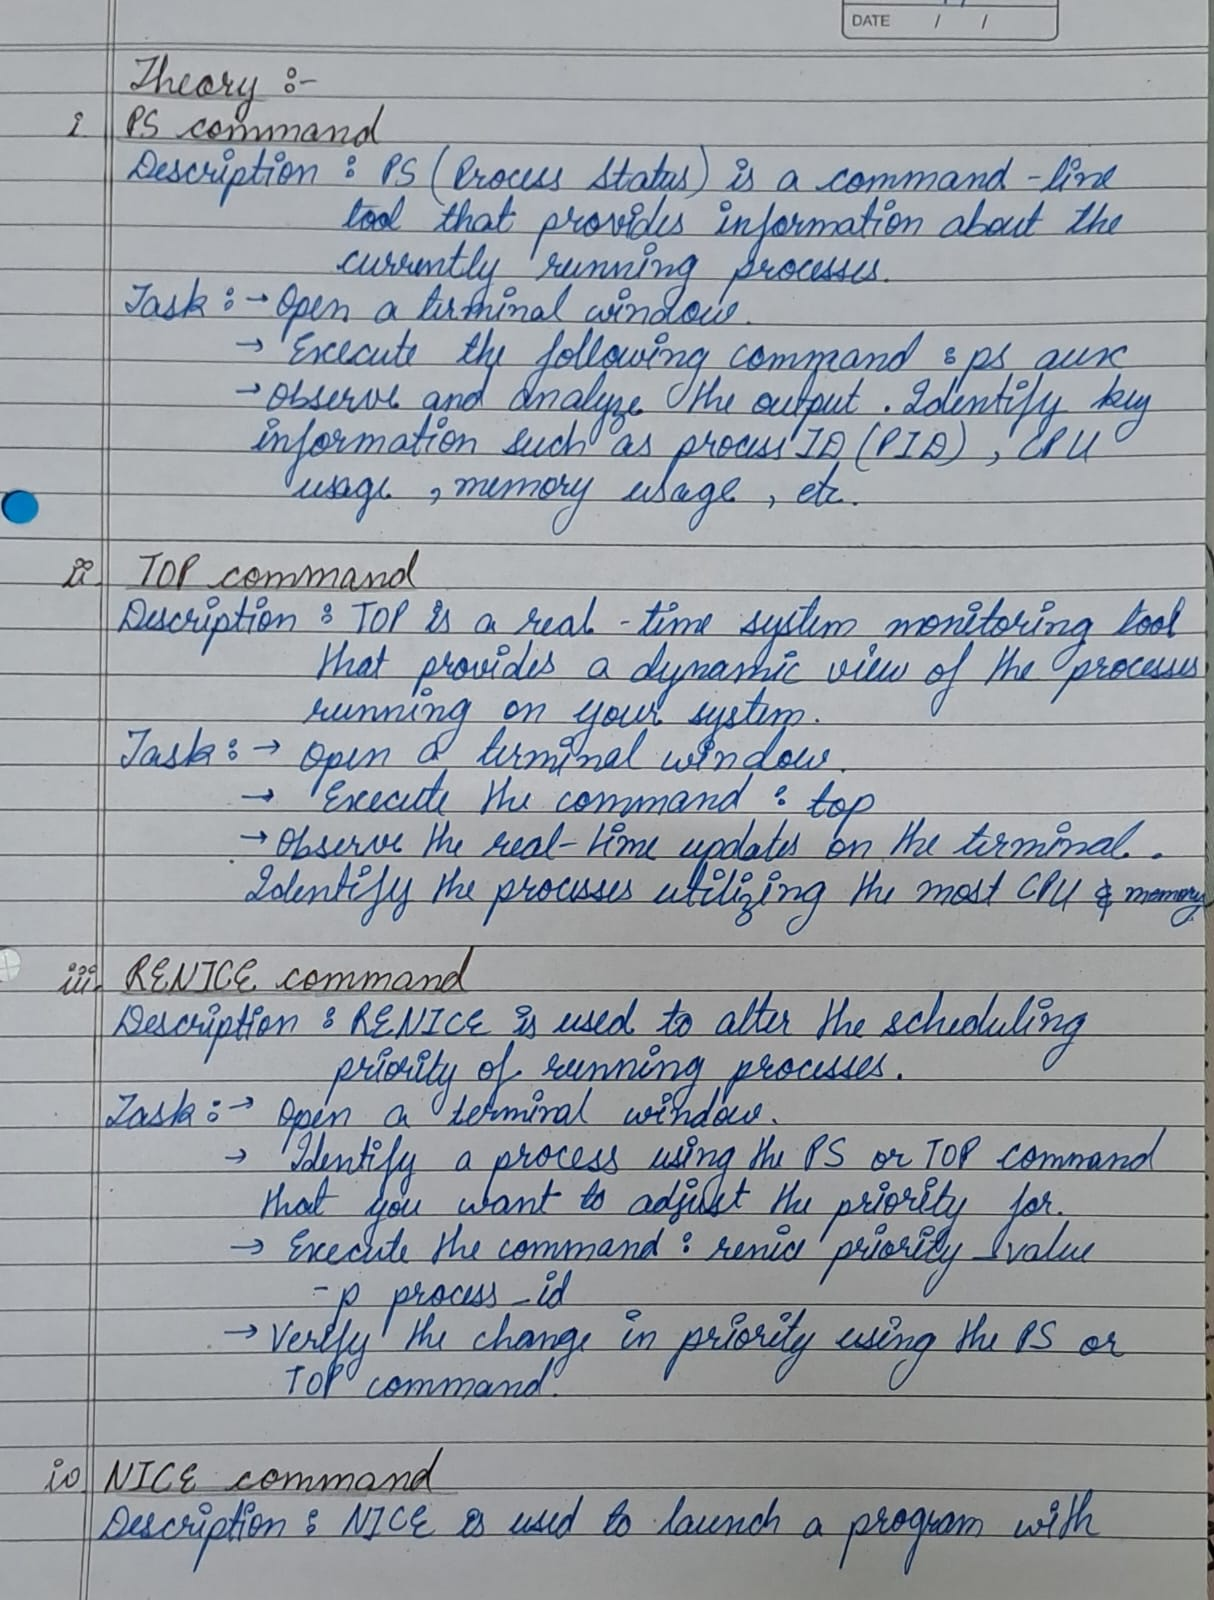 DATE / /
Theory :-
i. PS command
Description : PS (Process Status) is a command-line
tool that provides information about the
currently running processes.
Task : → Open a terminal window.
→ Execute the following command : ps aux
→ Observe and analyze the output. Identify key
information such as process ID (PID), CPU
usage, memory usage, etc.
ii. TOP command
Description : TOP is a real-time system monitoring tool
that provides a dynamic view of the processes
running on your system.
Task : → Open a terminal window.
→ Execute the command : top
→ Observe the real-time updates on the terminal.
Identify the processes utilizing the most CPU & memory
iii. RENICE command
Description : RENICE is used to alter the scheduling
priority of running processes.
Task : → Open a terminal window.
→ Identify a process using the PS or TOP command
that you want to adjust the priority for.
→ Execute the command : renice priority_value
-p process_id
→ Verify the change in priority using the PS or
TOP command.
iv NICE command
Description : NICE is used to launch a program with